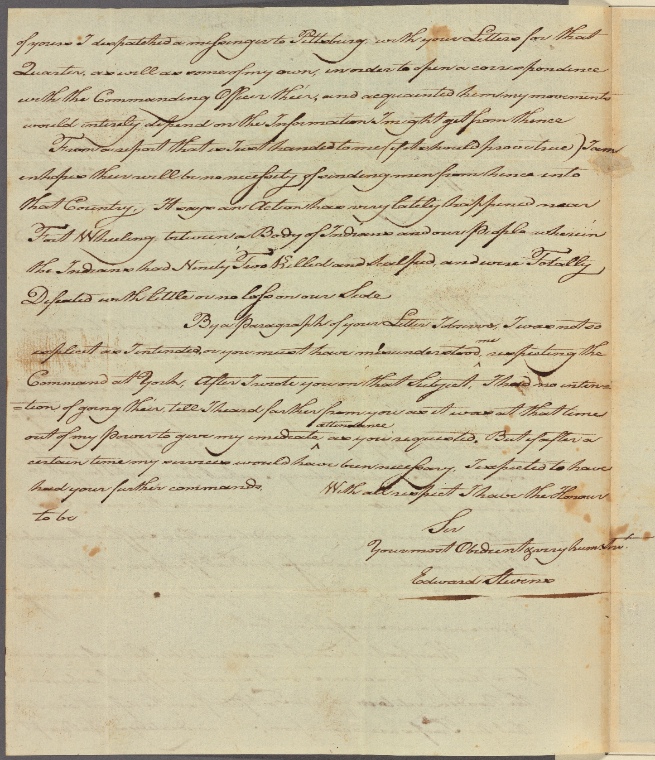 of yours I despatched a messinger to Pittsburg with your Letters for that
Quarter, as will as some of my own, in order to open a correspondence
with the Commanding Officer their, and acquainted him my movements
would intirely depend on the Information I might get from thence
From a report that is Just handed to me (if it should prove true) I am
in hopes their will be no necessity of sending men from hence into
that Country. It says an Action has very lately happined near
Fort Wheeling between a Body of Indians and our People wherein
the Indians had Ninety Two Killed and scalped, and were Totally
Defeated with little or no loss on our Side
By a Paragraph of your Letter I discover, I was not so
explicit as I intended, or you must have misunderstood me, respecting the
Command at York, After I wrote you on that Subject, I had no inten
=tion of going their, till I heard farther from you as it was at that time
out of my Power to give my imediate attendance as you requested, But if after a
certain time my services would have been necessary, I expected to have
had your further commands. With all respect I have the Honour
to be
Sir
Your most Obedient & very hum. Srv.
Edward Stevens